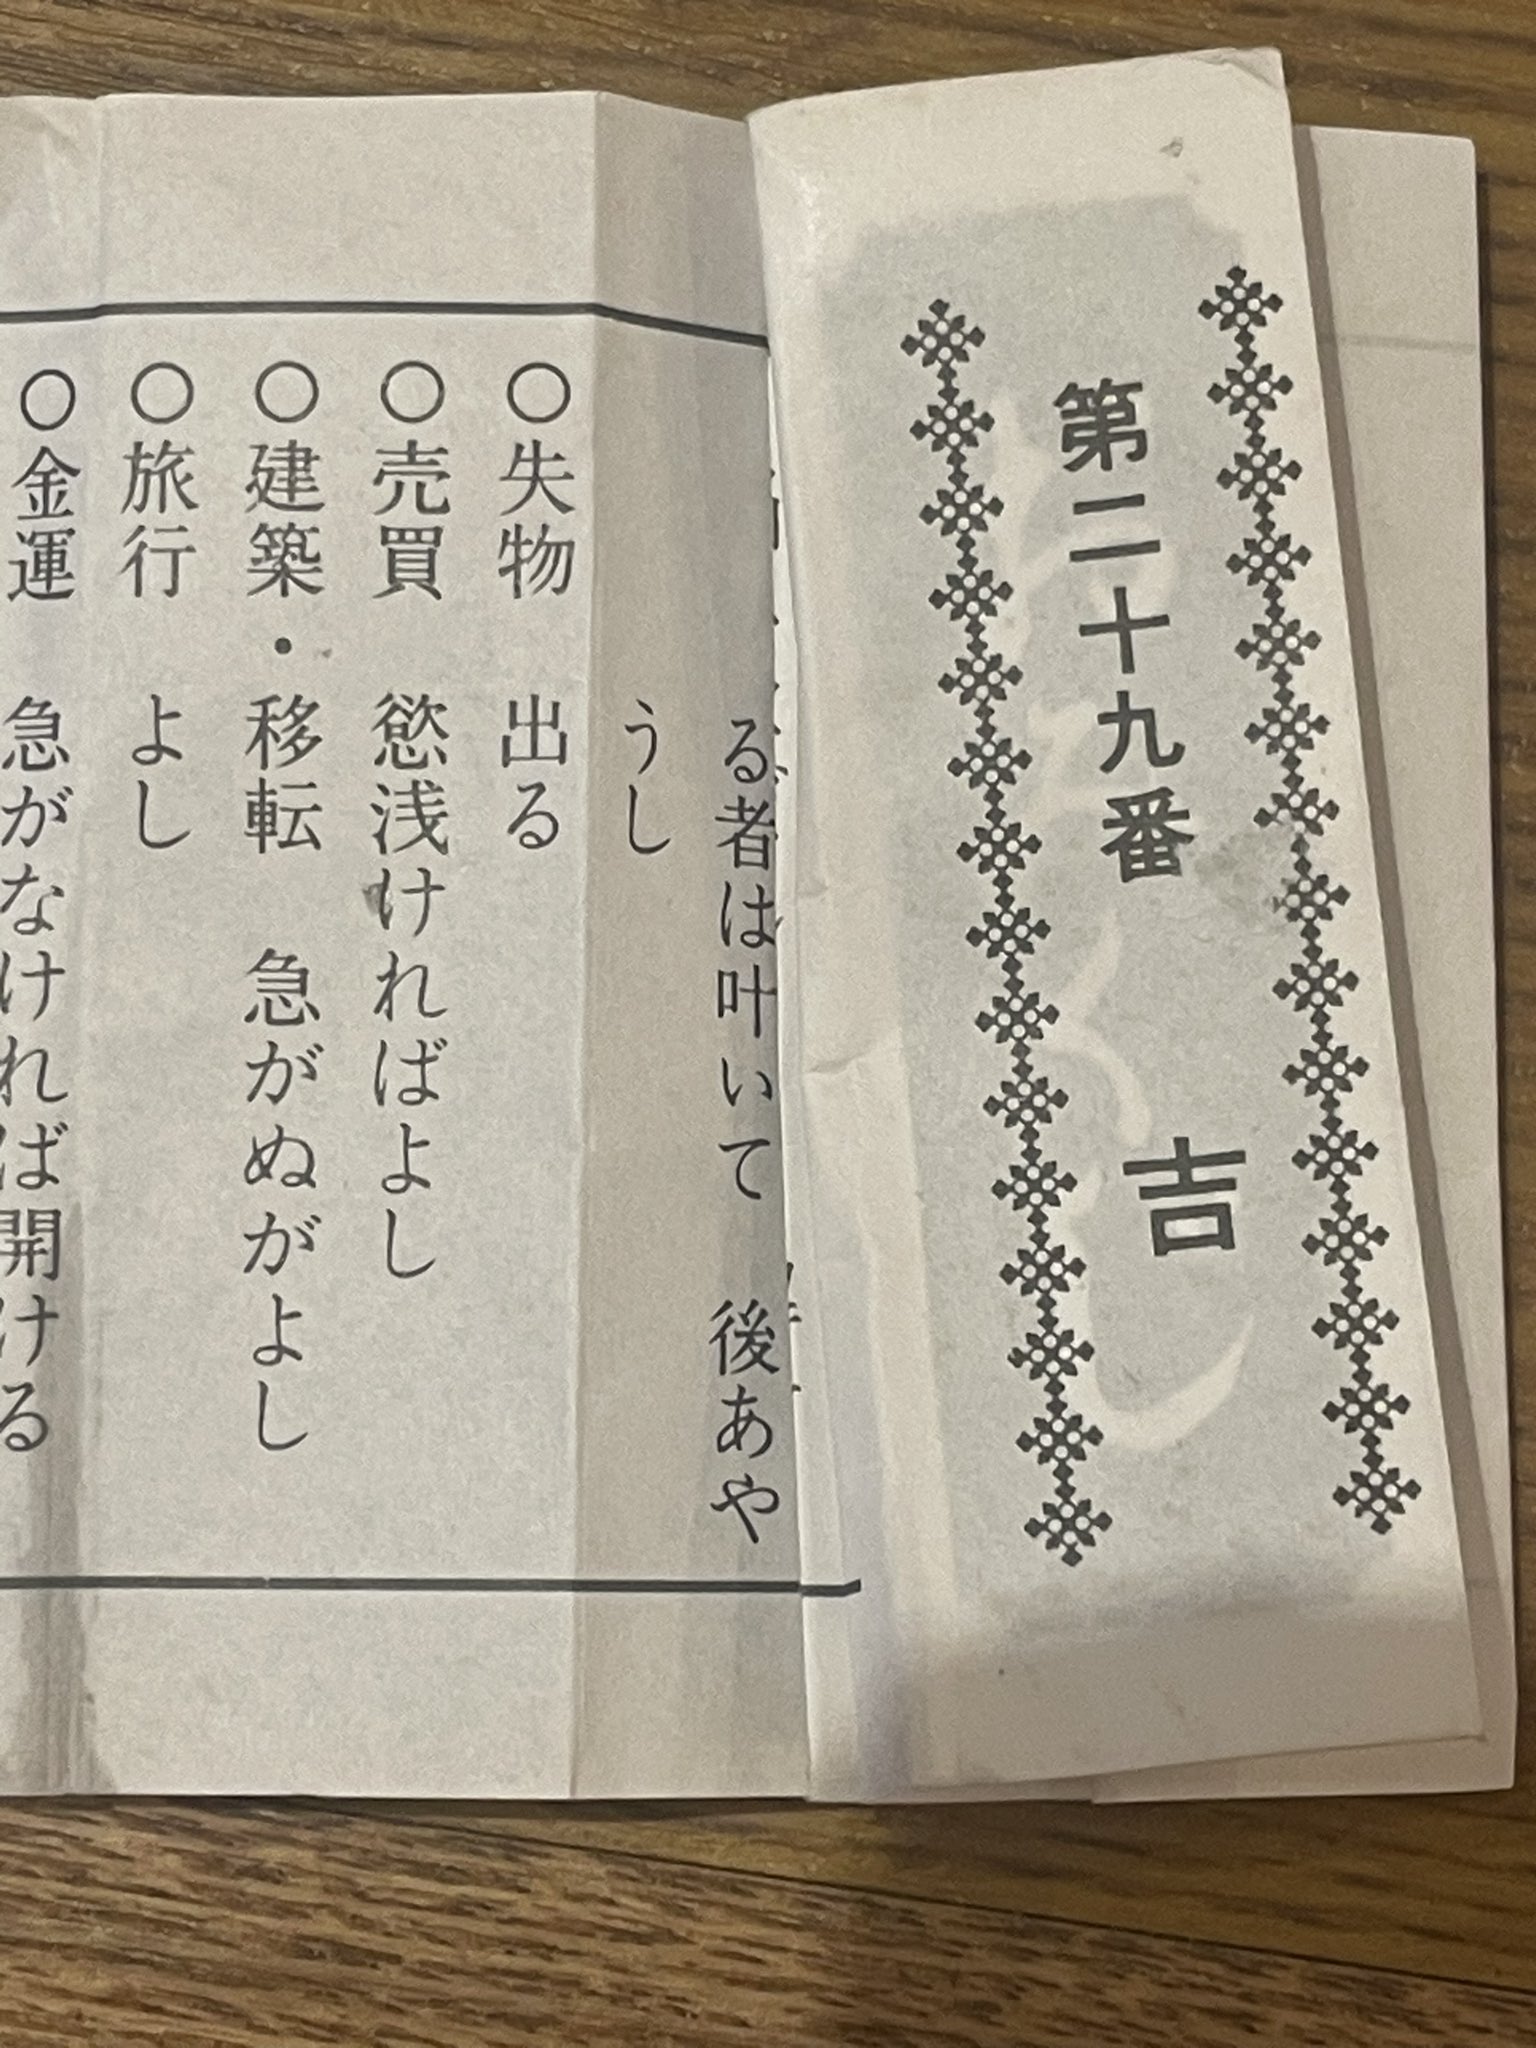 第二十九番　吉
る者は叶いて　後あや
うし
○失物　出る
○売買　慾浅ければよし
○建築・移転　急がぬがよし
○旅行　よし
○金運　急がなければ開ける